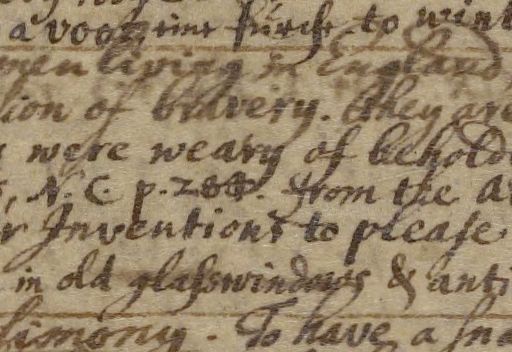 to wint
men living in England
tion of bravery. they are
were weary of behold
N. C. p. from the a
r Inventions to please
in old glasswindows & anti
timony. To have a